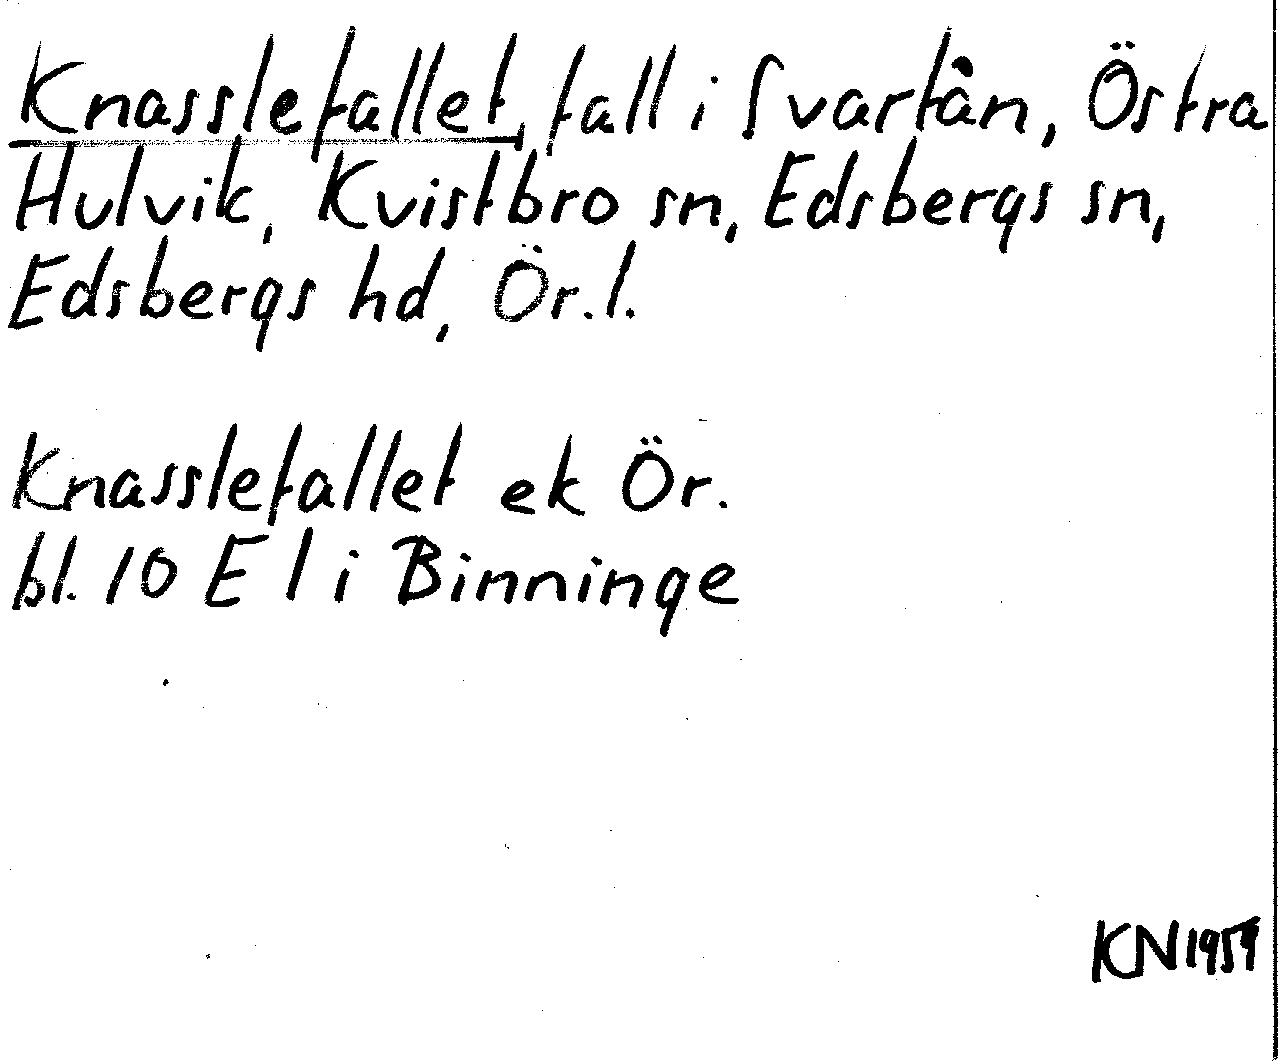 Knasslefallet, fall i Svartån, Östra
Hulvik, Kvistbro sn, Edsbergs sn,
Edsbergs hd, Ör.l.
Knasslefallet ek Ör.
bl. 10 E l i Binninge
KN 1959